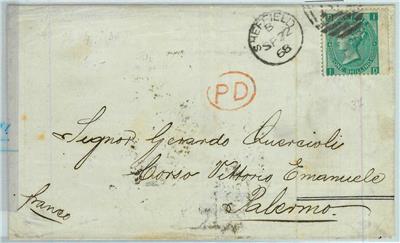 SHEFFIELD
B
SP 22
68
I
ONE SHILLING
I D
PD
Signor Gerardo Quercioli
Corso Vittorio Emanuele
Palermo.
franco